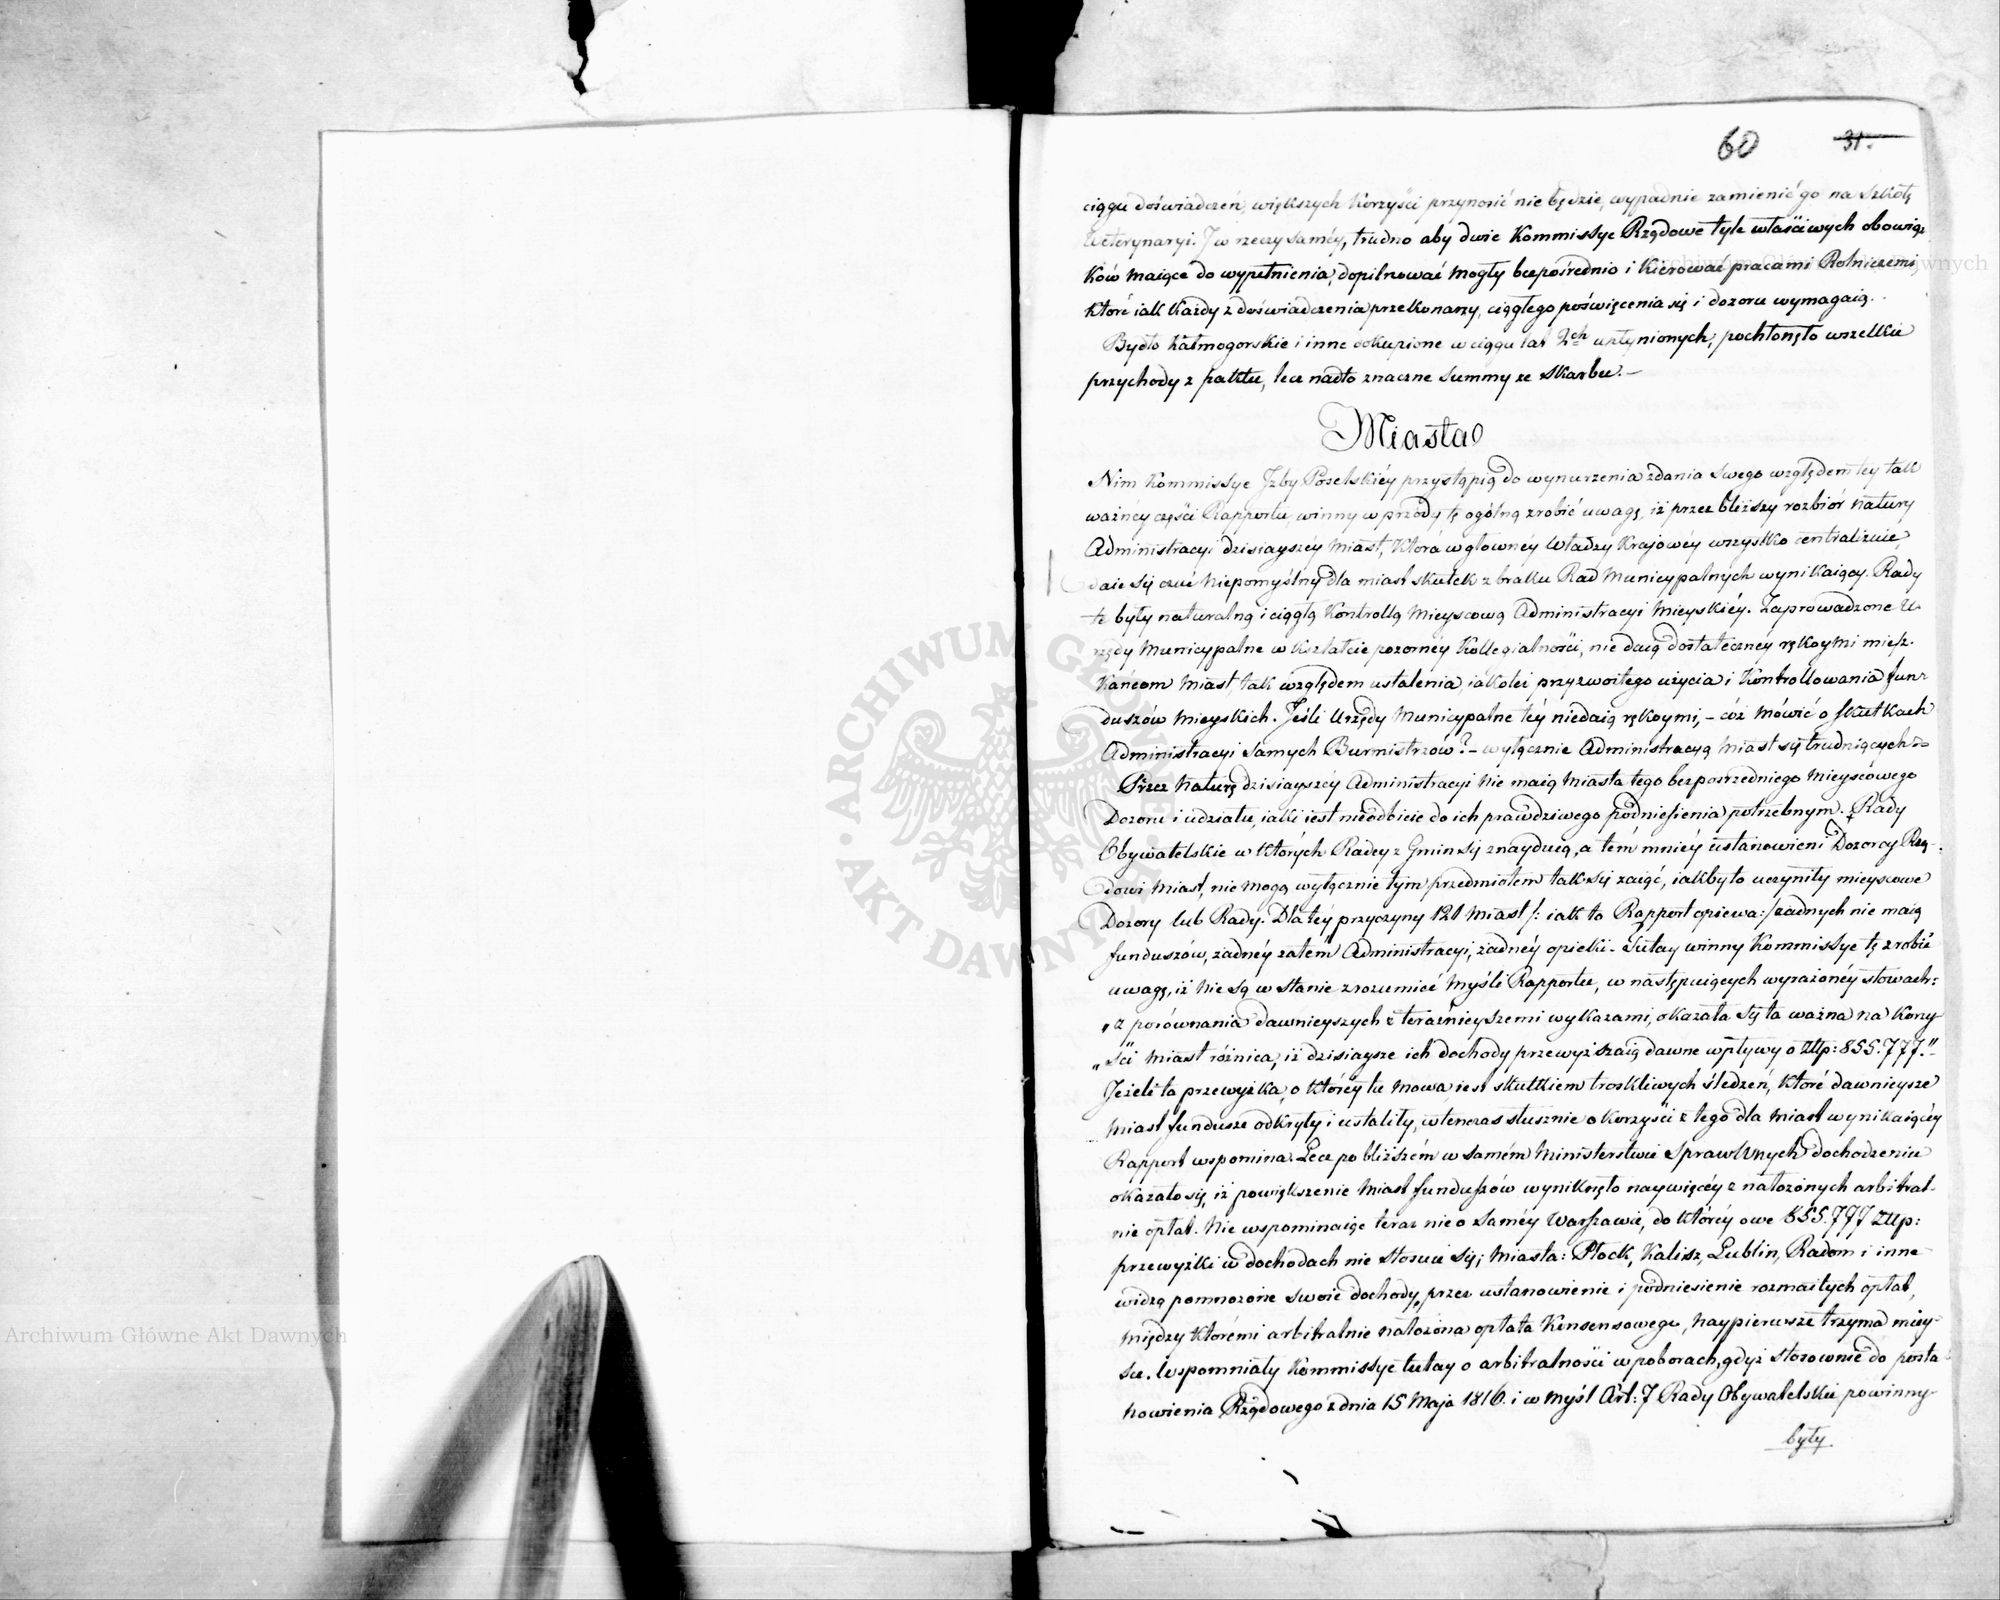 60 31.
ciągu doświadczeń, większych korzyści przynosić nie będzie, wypadnie zamienić go na szkołę
Weterynaryi. I w rzeczy saméy, trudno aby dwie Kommissye Rządowe tyle właściwych obowiąz
ków maiące do wypełnienia, dopilnować mogły bezpośrednio i kierować pracami Rolniczemi
które iak każdy z doświadczenia przekonany, ciągłego poświęcenia się i dozoru wymagaią.
Bydło Kałmogorskie i inne dokupione w ciągu lat 2ch upłynionych, pochłonęło wszelkie
przychody z paktu, lecz nadto znaczne summy ze skarbu. —
Miasta
Nim Kommissye Izby Poselskiéy przystąpią do wynurzenia zdania swego względem tey tak
ważnéy części Rapportu, winny w przódy tę ogólną zrobić uwagę, iż przez bliższy rozbiór natury
Administracyi dzisiayszéy miast, która w główney Władzy Kraiowéy wszystko centralizuie,
daie się czuć niepomyślny dla miast skutek z braku Rad Municypalnych wynikaiący. Rady
te były naturalną i ciągłą kontrollą mieyscową Administracyi Mieyskiéy. Zaprowadzone U-
rzędy Municypalne w kształcie pozornéy Kollegialności, nie daią dostatecznéy rękoymi miesz-
kańcom miast, tak względem ustalenia, iakoteż przyzwoitego użycia i kontrollowania fun-
duszów mieyskich. Jeśli Urzędy Municypalne téy niedaią rękoymi, – cóż mówić o skutkach
Administracyi samych Burmistrzów? – wyłącznie Administracyą miast się trudniących. –
Przez naturę dzisiayszéy Administracyi nie maią miasta tego bezpośrzedniego mieyscowego
Dozoru i udziału, iaki iest nieodbicie do ich prawdziwego podniesienia potrzebnym. Rady
Obywatelskie w których Radcy z Gmin się znayduią, a tém mniéy ustanowieni Dozorcy Rzą-
dowi miast, nie mogą wyłącznie tym przedmiotem tak się zaiąć, iakby to uczyniły mieyscowe
Dozory lub Rady. Dla téy przyczyny 121 miast /: iak to Rapport opiewa :/ żadnych nie maią
funduszów, żadnéy zatém Administracyi, żadnéy opieki. Tutay winny Kommissye tę zrobić
uwagę, iż nie są w stanie zrozumieć myśli Rapportu, w następuiących wyrażonéy słowach:
„z porównania dawnieyszych z teraźnieyszemi wykazami, okazała się ta ważna na korzy-
„ści miast różnica, iż dzisiaysze ich dochody przewyższaią dawne wpływy o Złlp: 855.777."
Jeżeli ta przewyżka, o któréy tu mowa, iest skutkiem troskliwych śledzeń, które dawnieysze
miast fundusze odkryły i ustaliły, wtenczas słusznie o korzyści z tego dla miast wynikaiącéy
Rapport wspomina. Lecz po bliższém w samém Ministerstwie Spraw Wnych dochodzeniu
okazało się, iż powiększenie miast funduszów wyniknęło naywięcéy z nałożonych arbitral-
nie opłat. Nie wspominaiąc teraz nic o saméy Warszawie, do któréy owe 855.777 Złlp:
przewyżki w dochodach nie stosuie się; miasta: Płock, Kalisz, Lublin, Radom i inne
widzą pomnożone swoie dochody, przez ustanowienie i podniesienie rozmaitych opłat,
między któremi arbitralnie nałożona opłata Konsensowego, naypierwsze trzyma miey-
sce. Wspomniały Kommissye tutay o arbitralności w poborach, gdyż stosownie do posta-
nowienia Rządowego z dnia 15 Maja 1816. i w myśl Art: 7 Rady Obywatelskie powinny
były
ARCHIWUM GŁÓWNE AKT DAWNYCH
Archiwum Główne Akt Dawnych
Archiwum Główne Akt Dawnych